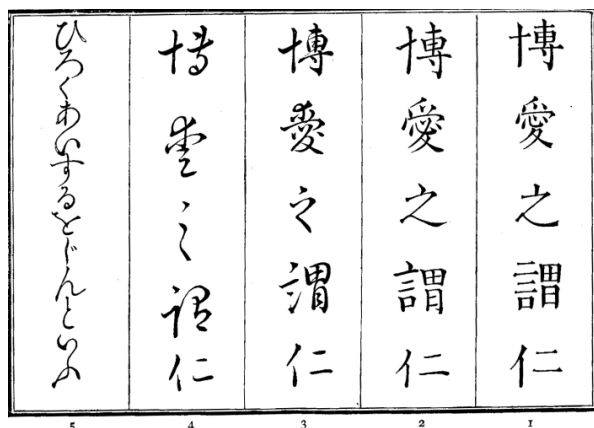 博愛之謂仁
博愛之謂仁
博愛之謂仁
博愛之謂仁
ひろくあいするをじんといふ
5 4 3 2 1